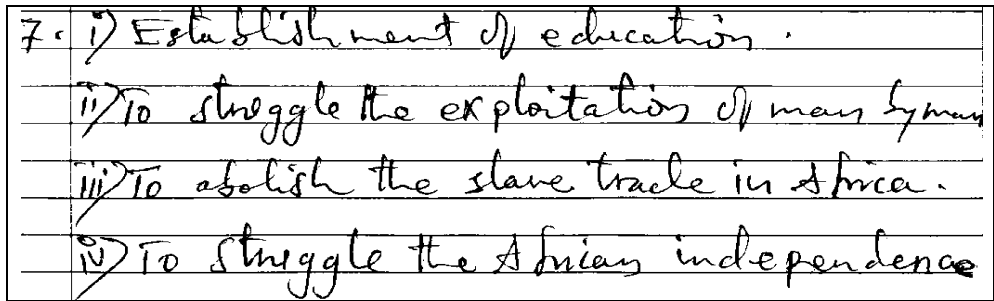 7. i) Establishment of education.
ii) To struggle the exploitation of man by man
iii) To abolish the slave trade in Africa.
iv) To struggle the African independence